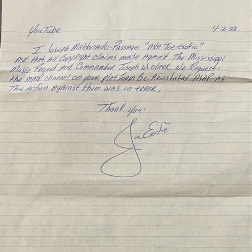 YouTube 4-2-22
I Joseph Maldonado-Passage "AKA Joe exotic"
ask that all Copyright claims made against The Mississippi
Music Project and Commander Joseph be clear. We Request
the channel on your platform Be Reinstated ASAP as
The action against them was in error.
Thank you:
Joe Exotic